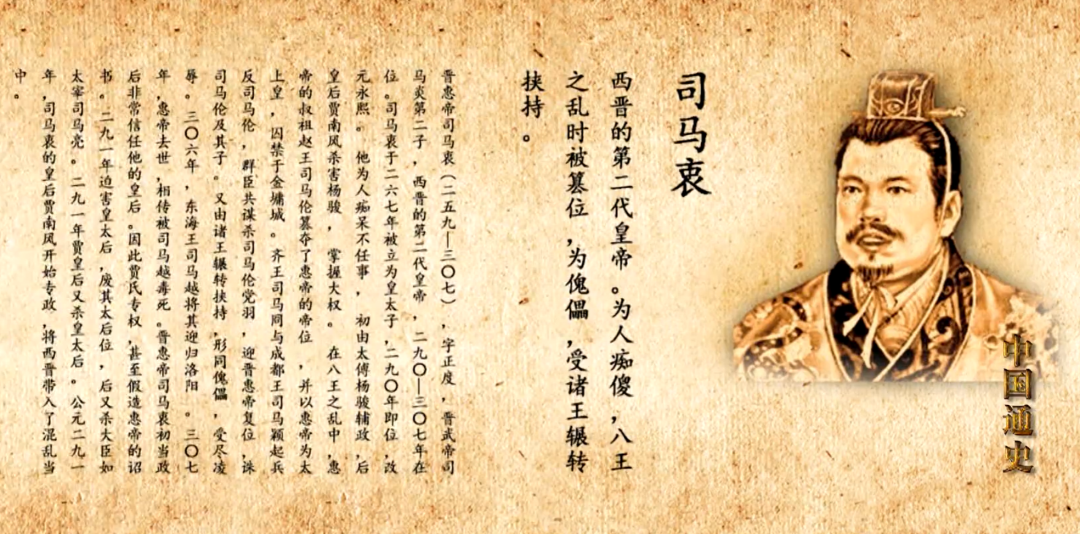 司马衷
西晋的第二代皇帝。为人痴傻,八王
之乱时被篡位,为傀儡,受诸王辗转
挟持。
晋惠帝司马衷(二五九—三〇七),字正度,晋武帝司
马炎第二子,西晋的第二代皇帝,二九〇—三〇七年在
位。司马衷于二六七年被立为皇太子,二九〇年即位,改
元永熙。他为人痴呆不任事,初由太傅杨骏辅政,后
皇后贾南风杀害杨骏,掌握大权。在八王之乱中,惠
帝的叔祖赵王司马伦篡夺了惠帝的帝位,并以惠帝为太
上皇,囚禁于金墉城。齐王司马冏与成都王司马颖起兵
反司马伦,群臣共谋杀司马伦党羽,迎晋惠帝复位,诛
司马伦及其子。又由诸王辗转挟持,形同傀儡,受尽凌
辱。三〇六年,东海王司马越将其迎归洛阳。三〇七
年,惠帝去世,相传被司马越毒死。晋惠帝司马衷初当政
后非常信任他的皇后。因此贾氏专权,甚至假造惠帝的诏
书。二九一年迫害皇太后,废其太后位,后又杀大臣如
太宰司马亮。二九一年贾皇后又杀皇太后。公元二九一
年,司马衷的皇后贾南风开始专政,将西晋带入了混乱当
中。
中国通史